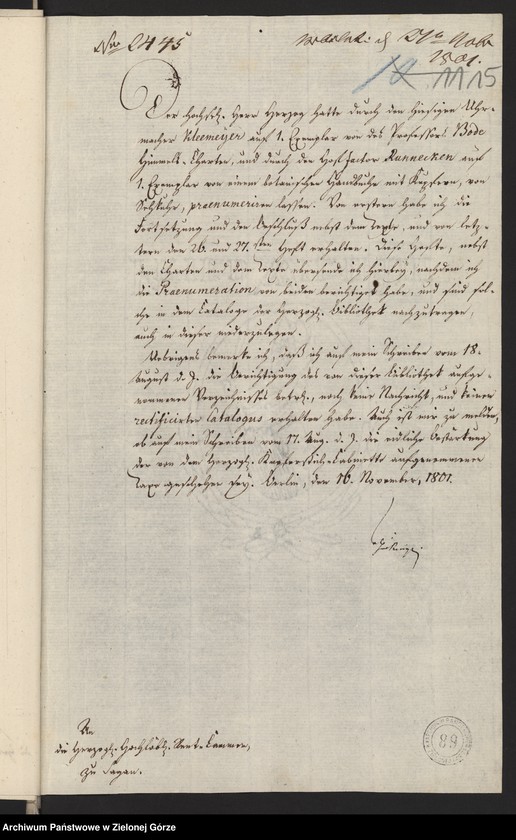 No 2445
d 21ten Nobr
1801.
1115
Der hochsel. Herr Herzog hatte durch den hiesigen Uhr-
macher Kleemeyer auf 1. Exemplar von des Professors Bode
Himmels-Charten, und durch den Hof factor Rannecken auf
1. Exemplar von einem botanischen Handbuche mit Kupfern, von
Schkuhr, praenumeriren lassen. Von erstern habe ich die
Fortsetzung und den Beschluß nebst dem Texte, und von letz-
tern den 26. und 27.sten Heft erhalten. Diese Hefte, nebst
den Charten und dem Texte übersende ich hierbey, nachdem ich
die Praenumeration von beiden berichtiget habe, und sind sol-
che in dem Cataloge der Herzogl. Bibliothek nachzutragen,
auch in dieser niederzulegen.
Uebrigens bemerke ich, daß ich auf mein Schreiben vom 18.
August d. J. die Berichtigung des von dieser Bibliothek aufge-
nommenen Verzeichnisses betrl., noch keine Nachricht, und keinen
rectificirten Catalogus erhalten habe. Auch ist mir zu melden,
ob auf mein Schreiben vom 17. Aug. d. J. die eidliche Bestärkung
der von dem Herzogl. Kupferstich-Cabinette aufgenommenen
Taxe geschehen sey. Berlin, den 16. November, 1801.
An
die Herzogl. Hochlöbl. Rent-Cammer,
zu Sagan.
89
Archiwum Państwowe w Zielonej Górze